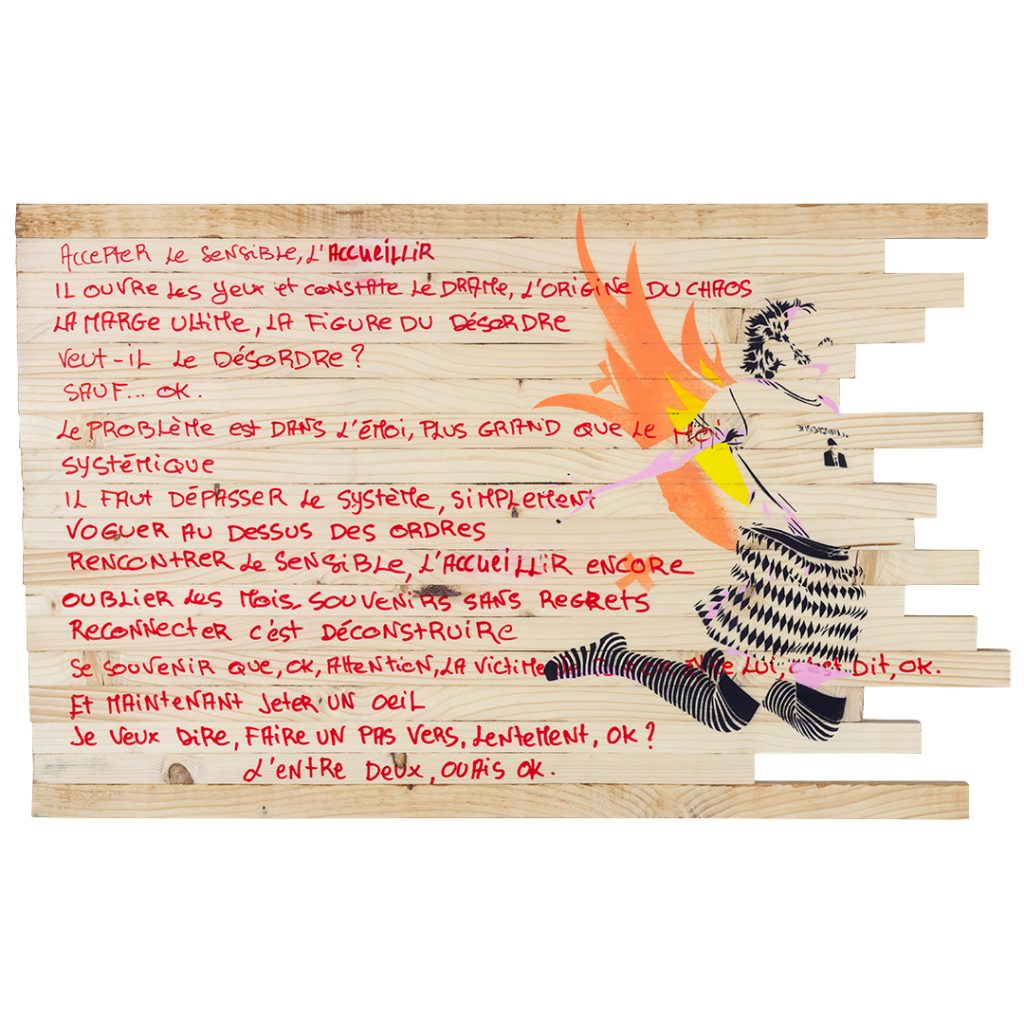 ACCEPTER LE SENSIBLE, L'ACCUEILLIR
IL OUVRE LES YEUX ET CONSTATE LE DRAME, L'ORIGINE DU CHAOS
LA MARGE ULTIME, LA FIGURE DU DÉSORDRE
VEUT-IL LE DÉSORDRE?
SAUF... OK.
LE PROBLÈME EST DANS L'ÉMOI, PLUS GRAND QUE LE MOI
SYSTÉMIQUE
IL FAUT DÉPASSER LE SYSTÈME, SIMPLEMENT
VOGUER AU DESSUS DES ORDRES
RENCONTRER LE SENSIBLE, L'ACCUEILLIR ENCORE
OUBLIER LES MOIS, SOUVENIRS SANS REGRETS
RECONNECTER C'EST DÉCONSTRUIRE
SE SOUVENIR QUE, OK, ATTENTION, LA VICTIME LUI, C'EST DIT, OK.
ET MAINTENANT JETER UN OEIL
JE VEUX DIRE, FAIRE UN PAS VERS, LENTEMENT, OK?
D'ENTRE DEUX, OUAIS OK.